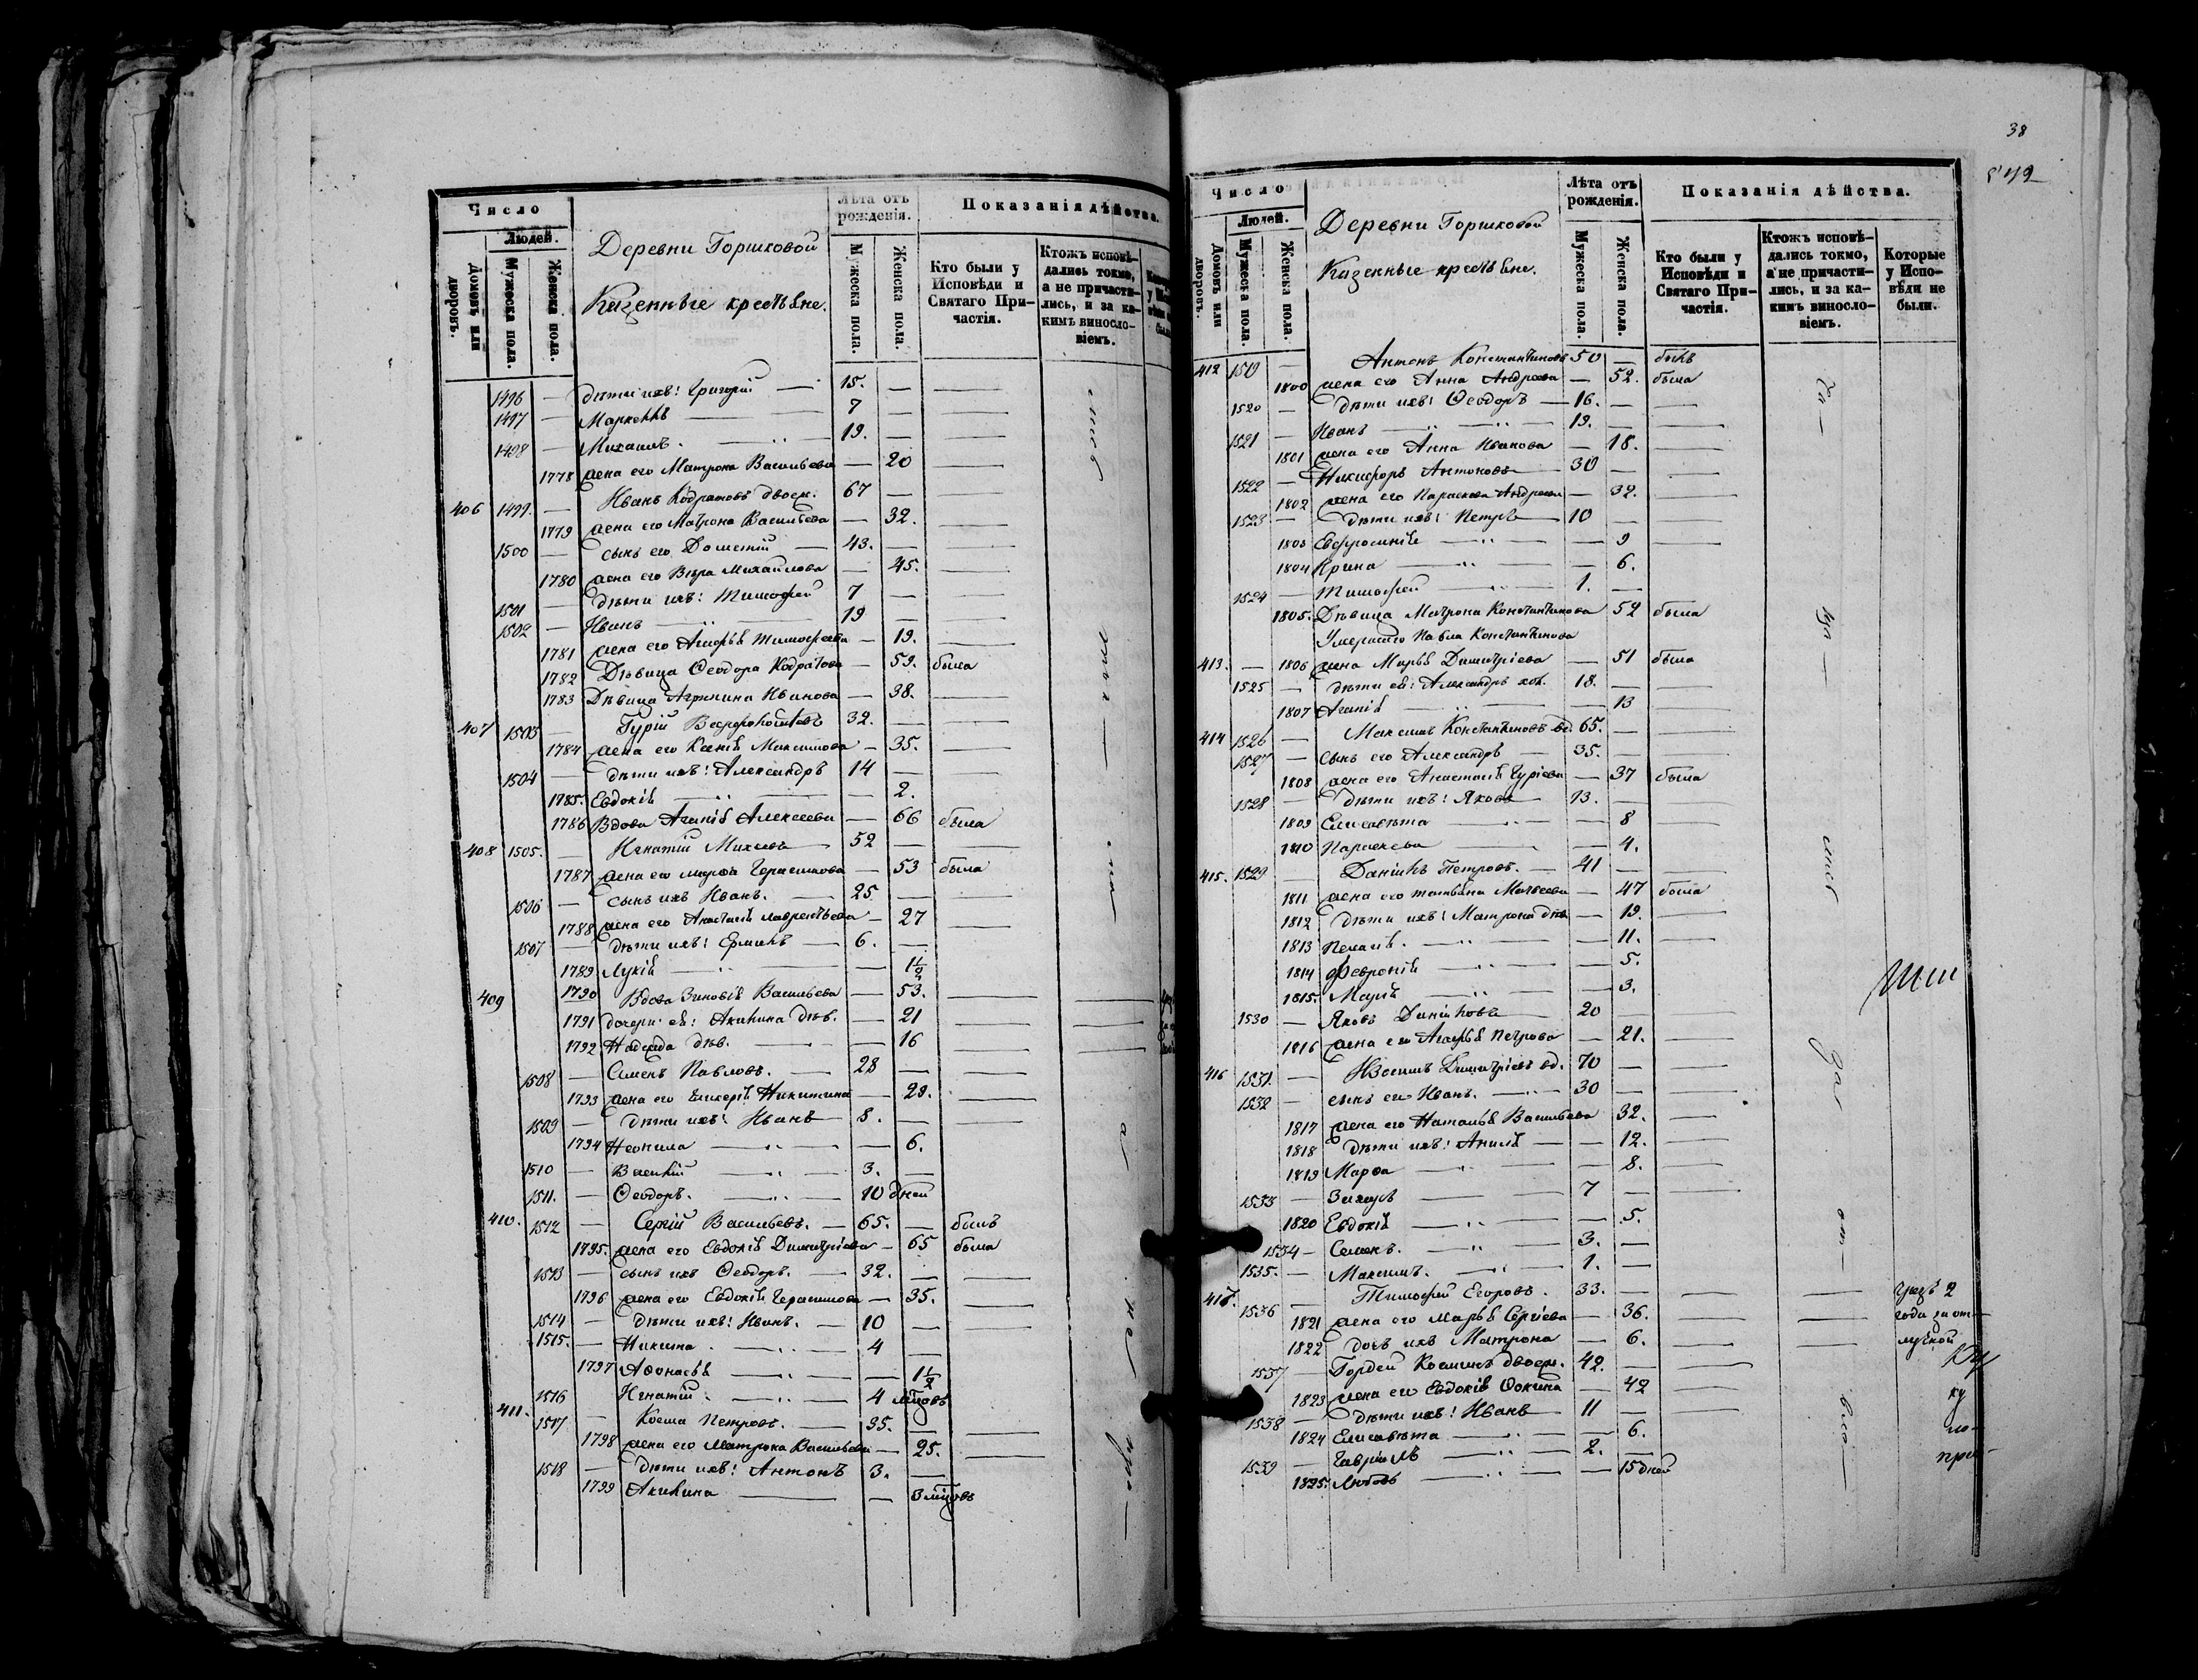 Число
Людей.
Домовъ или дворовъ.
Мужеска пола.
Женска пола.
Деревни Горшковой
Казенные крестьяне.
Лѣта отъ рожденія.
Мужеска пола.
Женска пола.
Показанія дѣйства.
Кто были у Исповѣди и Святаго Причастія.
Ктожъ исповѣдались токмо, а не причастились, и за какимъ винословіемъ.
1496 — дѣти ихъ: Григорій — 15. —
1497 — 7 —
1498 — Михаилъ. — 19. —
1778 жена его Матрона Васильева — 20
406 1499. — Иванъ Кодратовъ двоеж. 67 —
1779 жена его Матрона Васильева — 32.
1500 — сынъ его Дометій — 43. —
1780 жена его Вѣра Михайлова — 45.
1501 — дѣти ихъ: Тимофей 7 —
1502 — Иванъ — 19 —
1781 жена его Агафья Тимофеева — 19.
1782 Дѣвица Ѳеодора Кодратова — 59. была
1783 Дѣвица Агрипина Иванова — 38.
407 1503 — Гурій 32. —
1784 жена его Ксенія Максимова — 35.
1504 — дѣти ихъ: Александръ 14 —
1785. Евдокія — 2.
1786 Вдова Агапія Алексеева — 66 была
408 1505. — Игнатій Михеевъ 52 —
1787 жена его Марфа Герасимова — 53 была
1506 — сынъ ихъ Иванъ. — 25 —
1788 жена его Анастасія Лаврентьева — 27
1507 — дѣти ихъ: Ермилъ — 6. —
1789 Лукія — 1½
409 1790 Вдова Зиновія Васильева — 53.
1791 дочери ея: Акилина дѣв. — 21
1792 Надежда дѣв. — 16
1508 — Семенъ Павловъ. — 28 —
1793 жена его Гликерія Никитина — 28.
1509 — дѣти ихъ: Иванъ — 8. —
1794 Неонила — 6.
1510 — Василій — 3. —
1511. — Ѳеодоръ. — 10 дней
410. 1512 — Сергій Васильевъ. — 65. — былъ
1795. жена его Евдокія Димитріева — 65 была
1513 — сынъ ихъ Ѳеодоръ. — 32. —
1796 жена его Евдокія Герасимова — 35.
1514 — дѣти ихъ: Иванъ. — 10 —
1515. — Никита. — 4 —
1797 Аѳонасья — 1½
1516 Игнатій. — 4 мѣцовъ
411. 1517 — Косма Петровъ. — 35. —
1798 жена его Матрона Васильева — 25.
1518 — дѣти ихъ: Антонъ 3. —
1799 Акилина — 3 мѣцовъ
38
Число
Людей.
Домовъ или дворовъ.
Мужеска пола.
Женска пола.
Деревни Горшковой
Казенные крестьяне.
Лѣта отъ рожденія.
Мужеска пола.
Женска пола.
Показанія дѣйства.
Кто были у Исповѣди и Святаго Причастія.
Ктожъ исповѣдались токмо, а не причастились, и за какимъ винословіемъ.
Которые у Исповѣди не были.
412 1519 — Антонъ Константиновъ 50 — былъ
1800 жена его Анна Андреева — 52. была
1520 — дѣти ихъ: Ѳеодоръ — 16. —
1521 — Иванъ — 19. —
1801 жена его Анна Иванова — 18.
1522 — Никифоръ Антоновъ 30 —
1802 жена его Параскева Андреева — 32.
1523 — дѣти ихъ: Петръ 10 —
1803 Евфросинія — 9
1804 Ирина — 6.
1524 — Тимофей — 1. —
1805. Дѣвица Матрона Константинова 52 была
Умершаго Павла Константинова
413. — 1806 жена Марья Димитріева — 51 была
1525 — дѣти ея: Александръ хол. 18. —
1807 Агапія — 13
414 1526 — Максимъ Константиновъ вд. 65. —
1527 — сынъ его Александръ — 35. —
1808 жена его Анастасія Гуріева — 37 была
1528 — дѣти ихъ: Яковъ — 13. —
1809 Елисавѣта — 8
1810 Параскева — 4.
415. 1529 — Даніилъ Петровъ. — 41 —
1811 жена его Татьяна Матвеева — 47 была
1812 дѣти ихъ: Матрона дѣв. — 19.
1813 Пелагія. — 11.
1814 Февронія — 5.
1815. Марія — 3.
1530 — Яковъ Даніиловъ 20 —
1816 жена его Агафья Петрова — 21.
416 1531. — Димитріевъ вд. 70 —
1532 — сынъ его Иванъ. — 30 —
1817 жена его Наталья Васильева 32.
1818 дѣти ихъ: — 12.
1819 Марѳа — 8.
1533 — 7 —
1820 Евдокія — 5.
1534 — Семенъ. — 3. —
1535. — Максимъ. — 1. —
417. 1536 — Тимофей Егоровъ. 33. —
1821 жена его Марья Сергіева — 36.
1822 дочь ихъ Матрона — 6.
2 года за отлучкой
1537 — Гордей Косминъ двоеж. 42. —
1823 жена его Евдокія Ѳокина — 42
1538 — дѣти ихъ: Иванъ 11 —
1824 Елисавѣта — 6.
1539 — Гавріилъ — 2. —
1825. Любовь — 15 дней